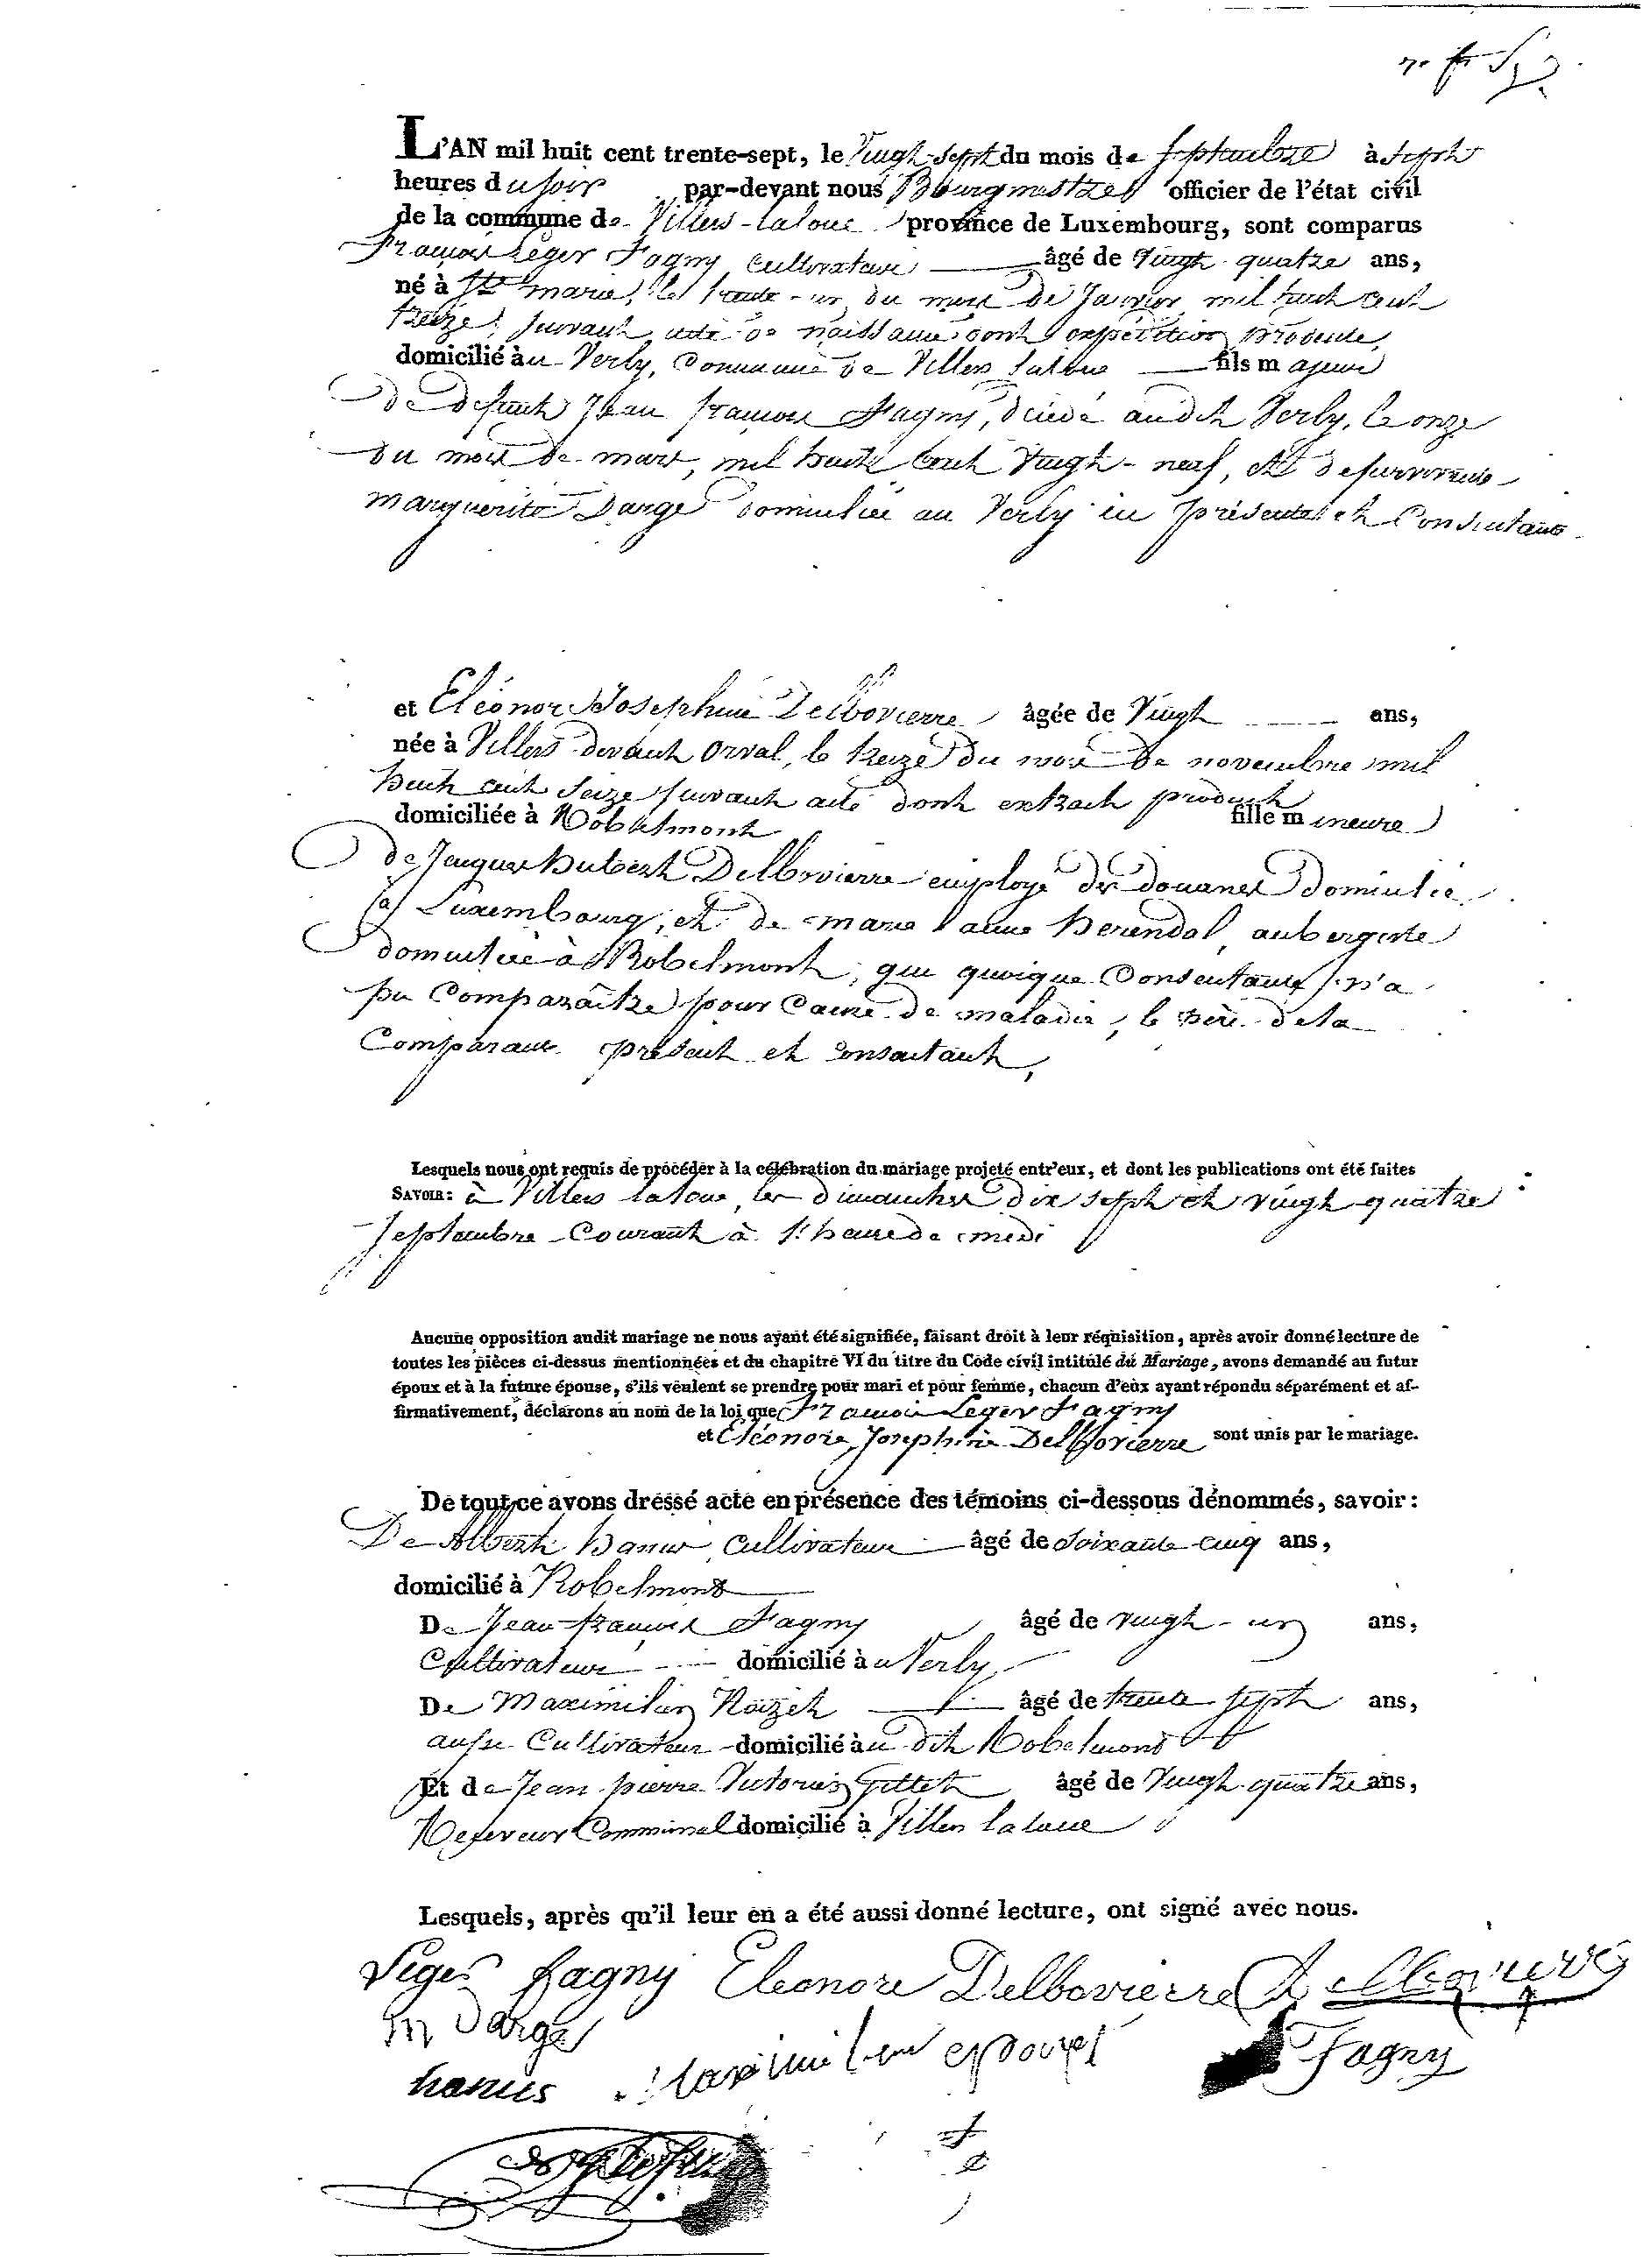 L'AN mil huit cent trente-sept, le Vingt-sept du mois de Septembre à Sept
heures du soir par-devant nous Bourgmestre officier de l'état civil
de la commune de Villers-laloue province de Luxembourg, sont comparus
François Léger Fagny cultivateur âgé de Vingt quatre ans,
né à Ste marie, le trente-un du mois de Janvier mil huit cent
treize, suivant acte de naissance dont expédition produite,
domicilié au Verly, Commune de Villers laloue fils majeur
de defunt Jean françois Fagny, décédé audit Verly, le onze
du mois de mars, mil huit Cent Vingt-neuf, et de survivante
marguerite Darge domiciliée au Verly ici présente et Consentante
et Eléonore Josephine Delbovierre âgée de Vingt ans,
née à Villers devant orval, le treize du mois de novembre mil
huit cent seize suivant acte dont extrait produit
domiciliée à Robelmont fille mineure
de Jacques hubert Delbovierre employé des douanes domicilié
à Luxembourg, et de marie anne herendal, aubergiste
domiciliée à Robelmont, qui quoique Consentante, n'a
pu Comparaître pour Cause de maladie, le père de la
Comparante présent et consentant,
Lesquels nous ont requis de procéder à la célébration du mariage projeté entr'eux, et dont les publications ont été faites
SAVOIR: à Villers laloue, les dimanches dix sept et vingt quatre
Septembre Courant à l'heure de midi
Aucune opposition audit mariage ne nous ayant été signifiée, faisant droit à leur réquisition, après avoir donné lecture de
toutes les pièces ci-dessus mentionnées et du chapitre VI du titre du Code civil intitulé du Mariage, avons demandé au futur
époux et à la future épouse, s'ils veulent se prendre pour mari et pour femme, chacun d'eux ayant répondu séparément et af-
firmativement, déclarons au nom de la loi que François Leger Fagny
et Eléonore Josephine Delbovierre sont unis par le mariage.
De tout ce avons dressé acte en présence des témoins ci-dessous dénommés, savoir:
De Albert hanus, Cultivateur âgé de soixante cinq ans,
domicilié à Robelmont
De Jean-françois Fagny âgé de vingt-un ans,
Cultivateur domicilié au Verly
De Maximilien Noizet âgé de trente sept ans,
aussi Cultivateur domicilié au dit Robelmont
Et de Jean pierre Victorien Gillet âgé de Vingt-quatre ans,
Receveur Communal domicilié à Villers laloue
Lesquels, après qu'il leur en a été aussi donné lecture, ont signé avec nous.
Léger fagny Eleonore Delbovierre
m Darge
hanus Fagny